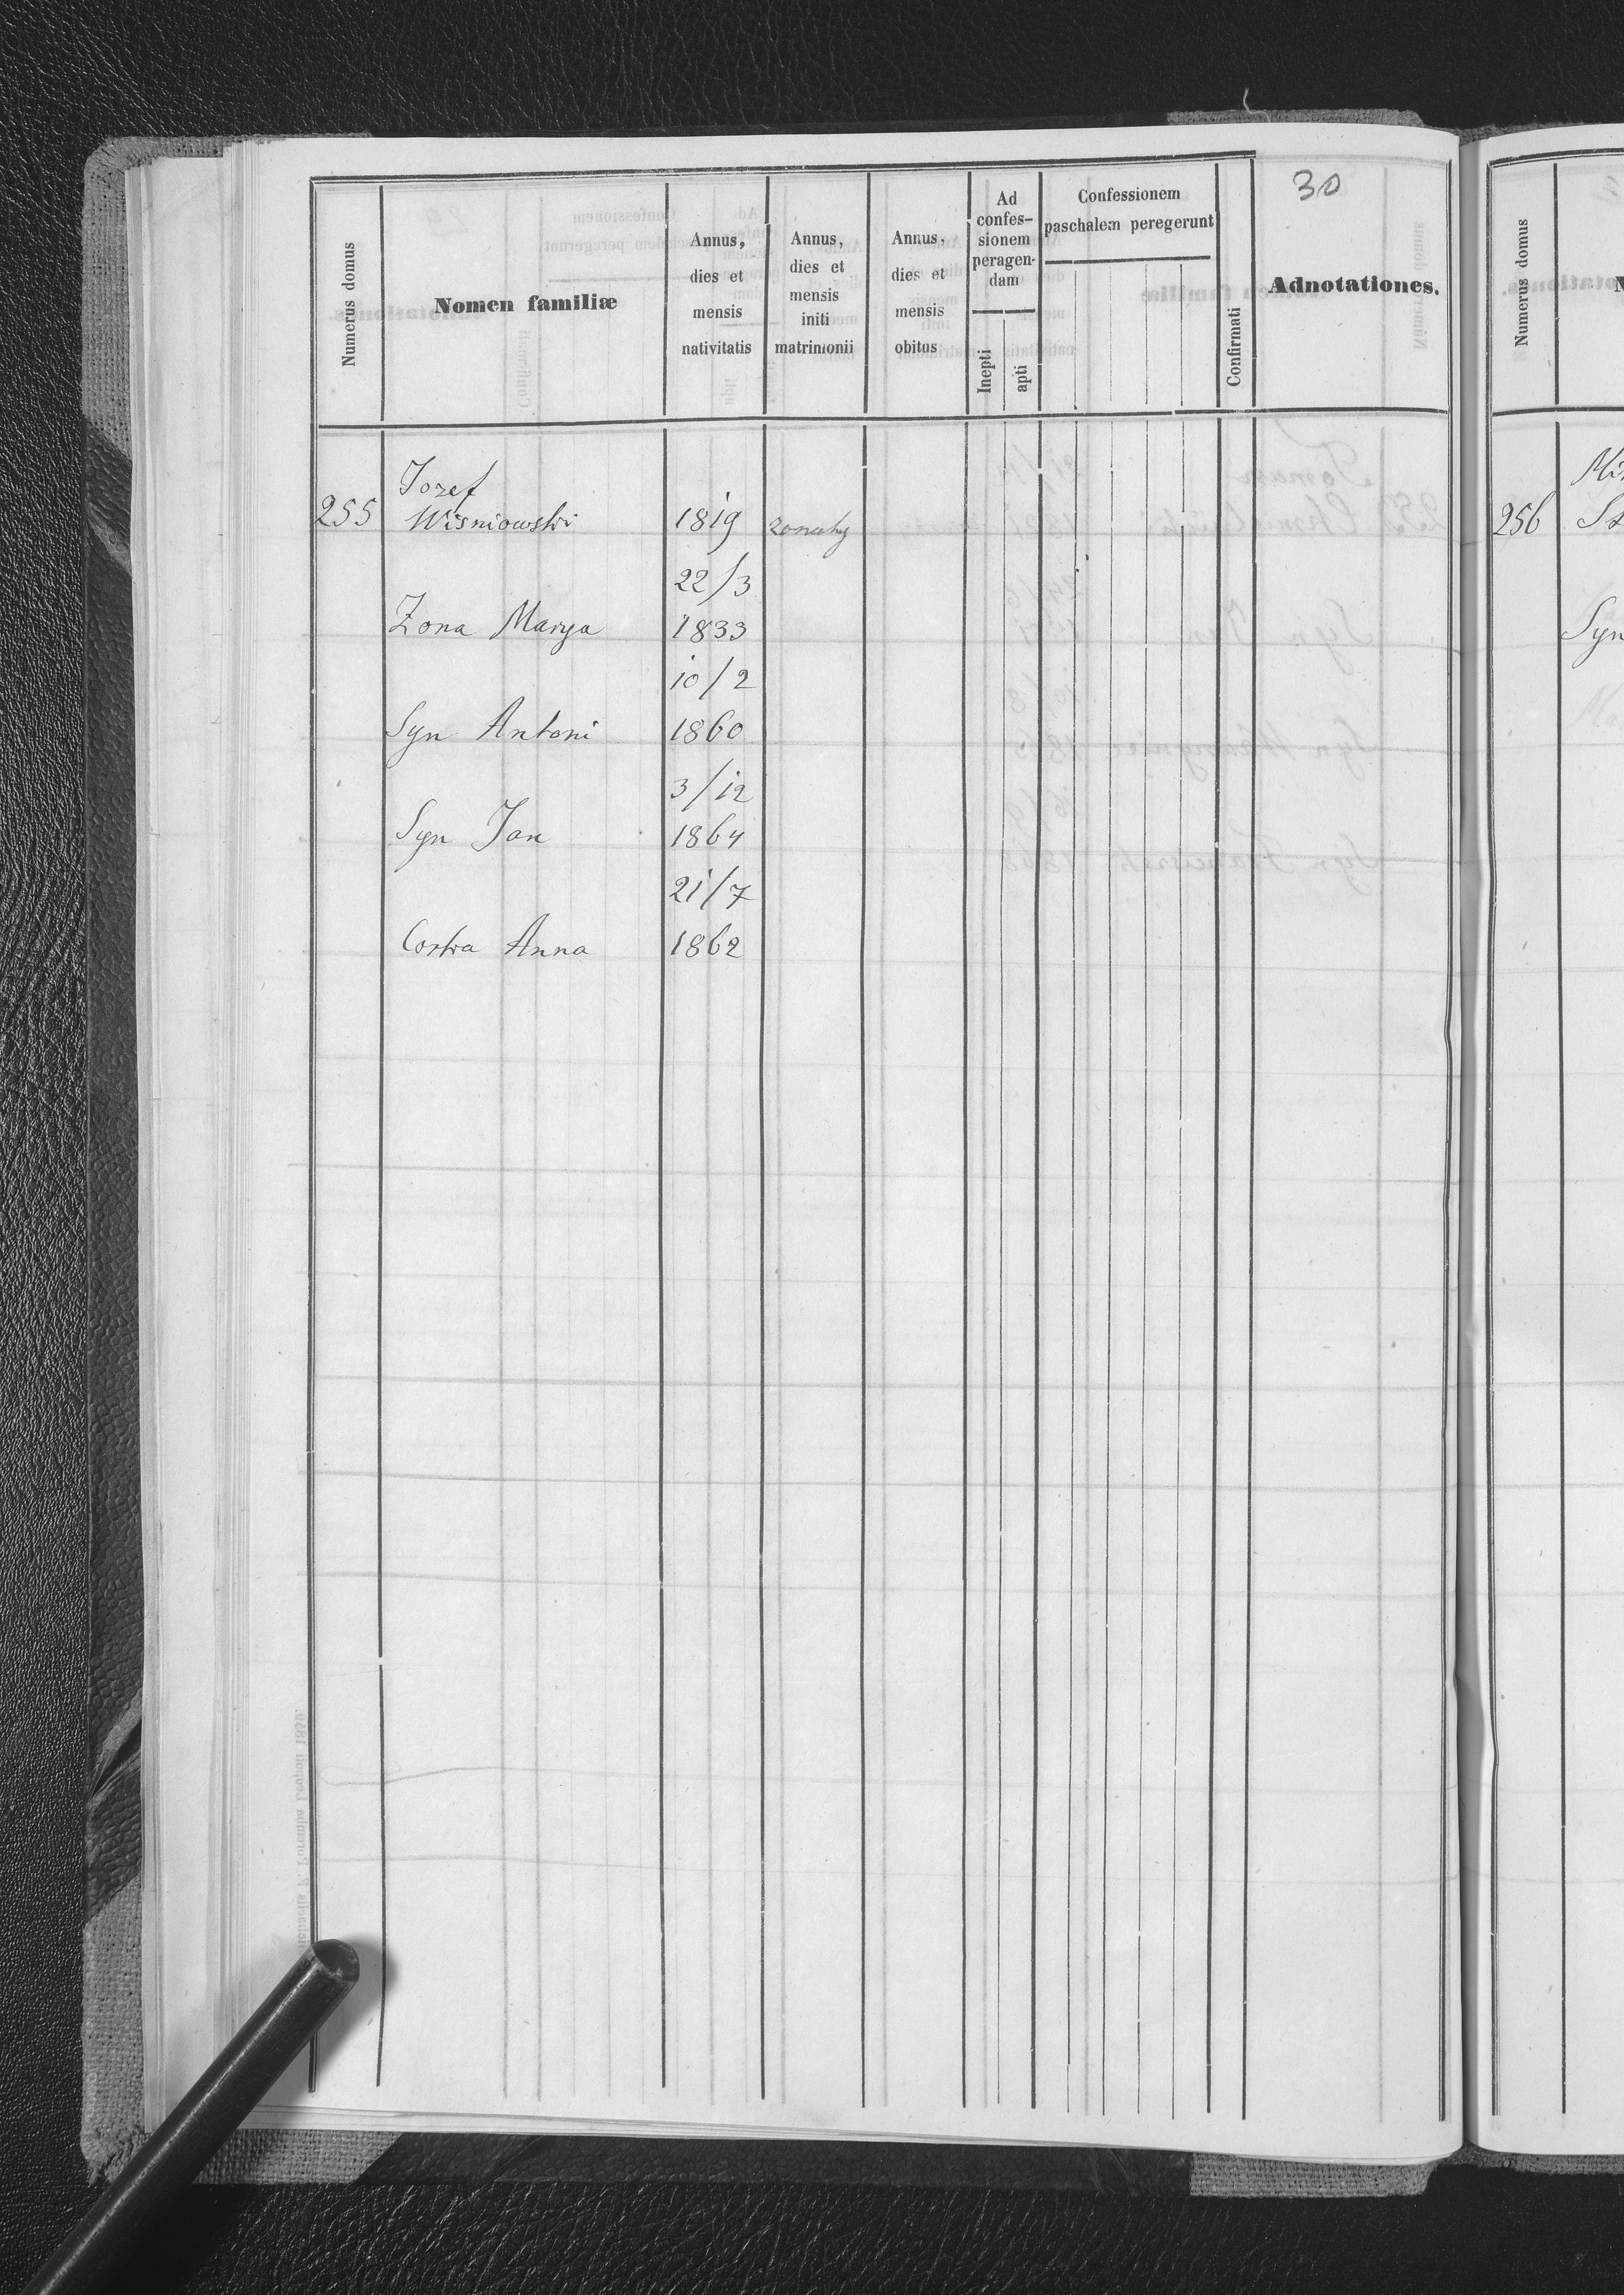 30
Numerus domus
Nomen familiæ
Annus,
dies et
mensis
nativitatis
Annus,
dies et
mensis
initi
matrimonii
Annus,
dies et
mensis
obitus
Ad
confes-
sionem
peragen-
dam
Inepti
apti
Confessionem
paschalem peregerunt
Confirmati
Adnotationes.
Jozef
255 Wisniowski 1819 zonaty
22/3
Zona Marya 1833
10/2
Syn Antoni 1860
3/12
Syn Jan 1864
21/7
Corka Anna 1862
Numerus domus
256
Syn